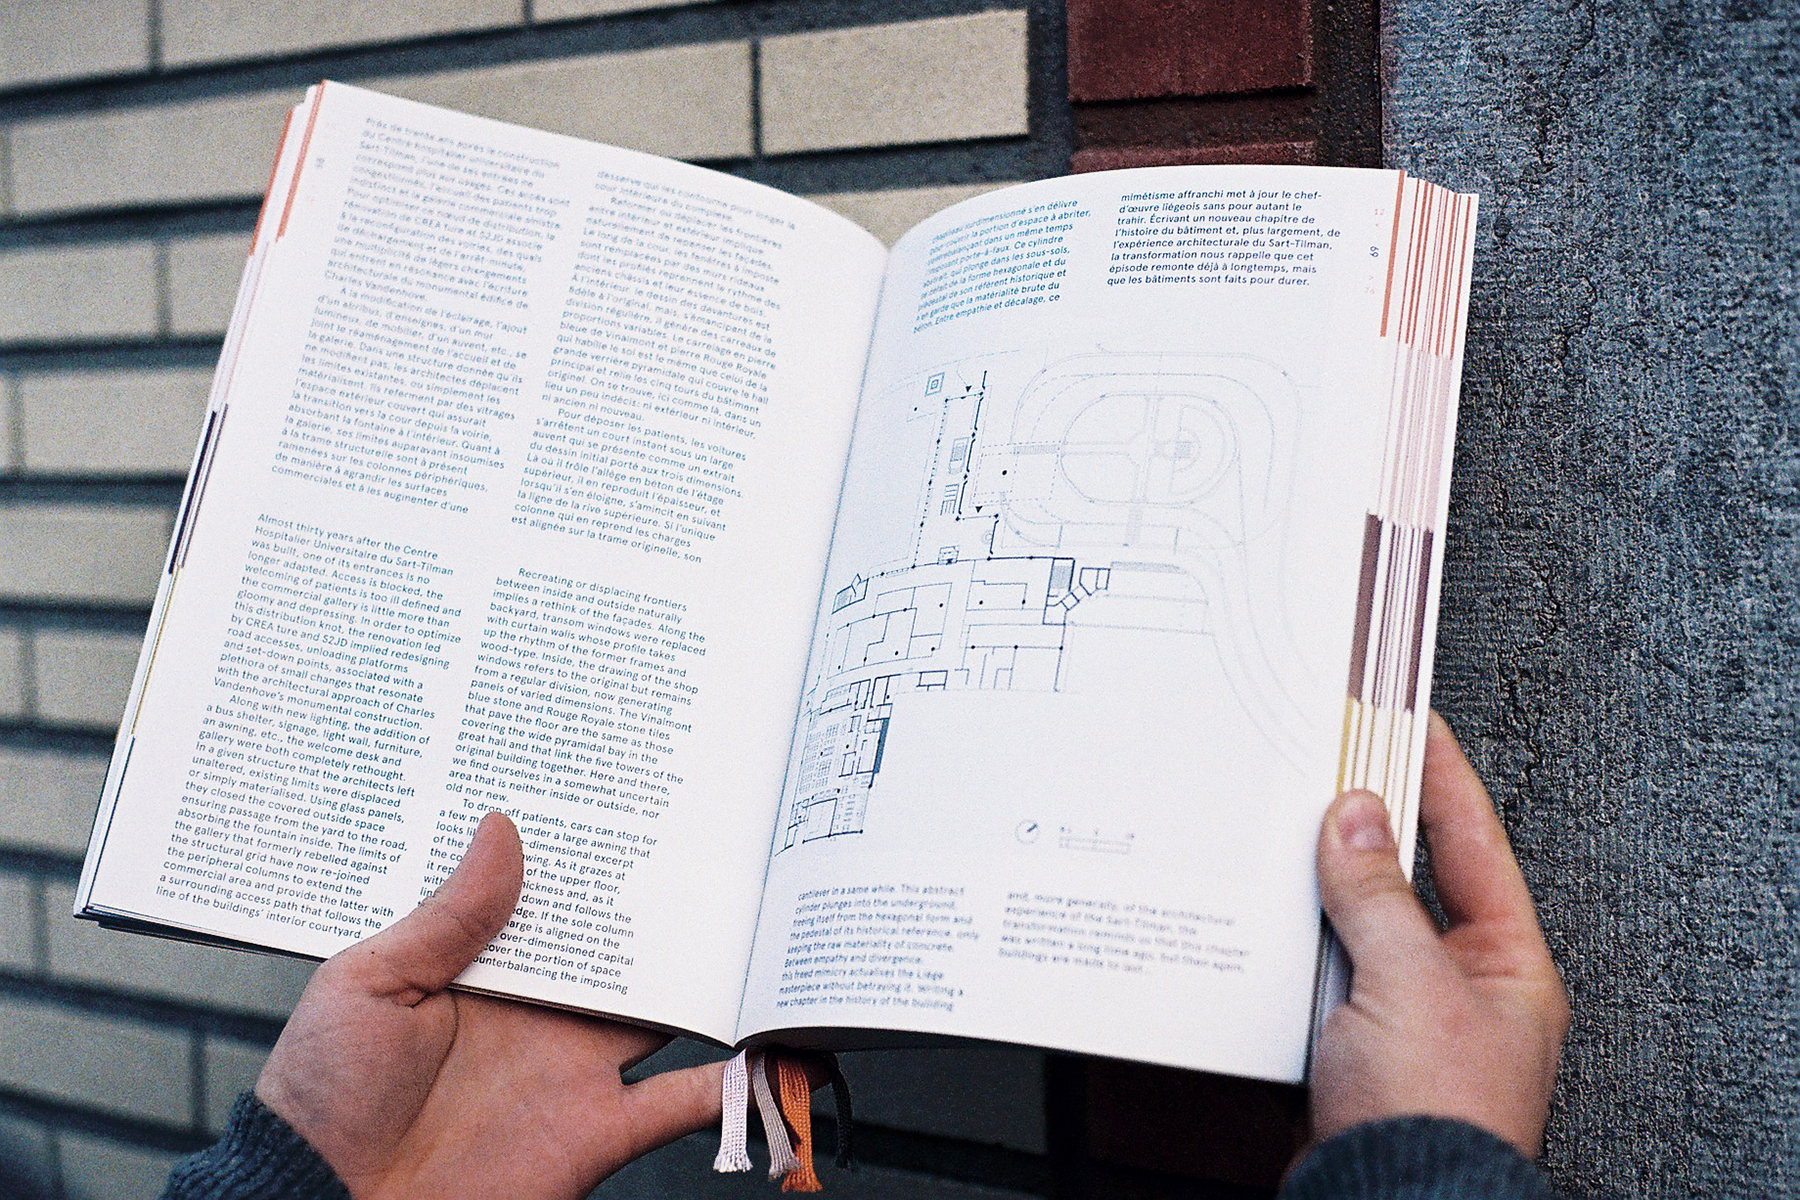 Près de trente ans après la construction
du Centre hospitalier universitaire du
Sart-Tilman, l'une de ses entrées ne
correspond plus aux usages. Ces accès sont
congestionnés, l'accueil des patients trop
indistinct et la galerie commerciale sinistre.
Pour optimiser ce nœud de distribution, la
rénovation de CREA ture et S2JD associe
à la reconfiguration des voiries, des quais
de déchargement et de l'arrêt-minute,
une multiplicité de légers changements
qui entrent en résonance avec l'écriture
architecturale du monumental édifice de
Charles Vandenhove.
À la modification de l'éclairage, l'ajout
d'un abribus, d'enseignes, d'un mur
lumineux, de mobilier, d'un auvent, etc., se
joint le réaménagement de l'accueil et de
la galerie. Dans une structure donnée qu'ils
ne modifient pas, les architectes déplacent
les limites existantes, ou simplement les
matérialisent. Ils referment par des vitrages
l'espace extérieur couvert qui assurait
la transition vers la cour depuis la voirie,
absorbant la fontaine à l'intérieur. Quant à
la galerie, ses limites auparavant insoumises
à la trame structurelle sont à présent
ramenées sur les colonnes périphériques,
de manière à agrandir les surfaces
commerciales et à les augmenter d'une
desserve qui les contourne pour longer la
cour intérieure du complexe.
Refonder ou déplacer les frontières
entre intérieur et extérieur implique
naturellement de repenser les façades.
Le long de la cour, les fenêtres à imposte
sont remplacées par des murs rideaux
dont les profilés reprennent le rythme des
anciens châssis et leur essence de bois.
À l'intérieur, le dessin des devantures est
fidèle à l'original, mais, s'émancipant de la
division régulière, il génère des carreaux de
proportions variables. Le carrelage en pierre
bleue de Vinalmont et pierre Rouge Royale
qui habille le sol est le même que celui de la
grande verrière pyramidale qui couvre le hall
principal et relie les cinq tours du bâtiment
original. On se trouve, ici comme là, dans un
lieu un peu indécis: ni extérieur ni intérieur,
ni ancien ni nouveau.
Pour déposer les patients, les voitures
s'arrêtent un court instant sous un large
auvent qui se présente comme un extrait
du dessin initial porté aux trois dimensions.
Là où il frôle l'allège en béton de l'étage
supérieur, il en reproduit l'épaisseur, et
lorsqu'il s'en éloigne, s'amincit en suivant
la ligne de la rive supérieure. Si l'unique
colonne qui en reprend les charges
est alignée sur la trame originelle, son
Almost thirty years after the Centre
Hospitalier Universitaire du Sart-Tilman
was built, one of its entrances is no
longer adapted. Access is blocked, the
welcoming of patients is too ill defined and
the commercial gallery is little more than
gloomy and depressing. In order to optimize
this distribution knot, the renovation led
by CREA ture and S2JD implied redesigning
road accesses, unloading platforms
and set-down points, associated with a
plethora of small changes that resonate
with the architectural approach of Charles
Vandenhove's monumental construction.
Along with new lighting, the addition of
a bus shelter, signage, light wall, furniture,
an awning, etc., the welcome desk and
gallery were both completely rethought.
In a given structure that the architects left
unaltered, existing limits were displaced
or simply materialised. Using glass panels,
they closed the covered outside space
ensuring passage from the yard to the road,
absorbing the fountain inside. The limits of
the gallery that formerly rebelled against
the structural grid have now re-joined
the peripheral columns to extend the
commercial area and provide the latter with
a surrounding access path that follows the
line of the buildings' interior courtyard.
Recreating or displacing frontiers
between inside and outside naturally
implies a rethink of the façades. Along the
backyard, transom windows were replaced
with curtain walls whose profile takes
up the rhythm of the former frames and
wood-type. Inside, the drawing of the shop
windows refers to the original but remains
from a regular division, now generating
panels of varied dimensions. The Vinalmont
blue stone and Rouge Royale stone tiles
that pave the floor are the same as those
covering the wide pyramidal bay in the
great hall and that link the five towers of the
original building together. Here and there,
we find ourselves in a somewhat uncertain
area that is neither inside or outside, nor
old nor new.
To drop off patients, cars can stop for
a few under a large awning that
looks -dimensional excerpt
of the wing. As it grazes at
the of the upper floor,
it thickness and, as it
with down and follows the
edge. If the sole column
is aligned on the
over-dimensioned capital
cover the portion of space
ounterbalancing the imposing
chapiteau surdimensionné s'en délivre
pour couvrir la portion d'espace à abriter,
contrebalançant dans un même temps
l'imposant porte-à-faux. Ce cylindre
abstrait, qui plonge dans les sous-sols,
se défait de la forme hexagonale et du
piédestal de son référent historique et
n'en garde que la matérialité brute du
béton. Entre empathie et décalage, ce
mimétisme affranchi met à jour le chef-
d'œuvre liégeois sans pour autant le
trahir. Écrivant un nouveau chapitre de
l'histoire du bâtiment et, plus largement, de
l'expérience architecturale du Sart-Tilman,
la transformation nous rappelle que cet
épisode remonte déjà à longtemps, mais
que les bâtiments sont faits pour durer.
69
cantilever in a same while. This abstract
cylinder plunges into the underground,
freeing itself from the hexagonal form and
the pedestal of its historical reference, only
keeping the raw materiality of concrete.
Between empathy and divergence,
this freed mimicry actualises the Liège
masterpiece without betraying it. Writing a
new chapter in the history of the building
and, more generally, of the architectural
experience of the Sart-Tilman, the
transformation reminds us that this chapter
was written a long time ago, but then again,
buildings are made to last.